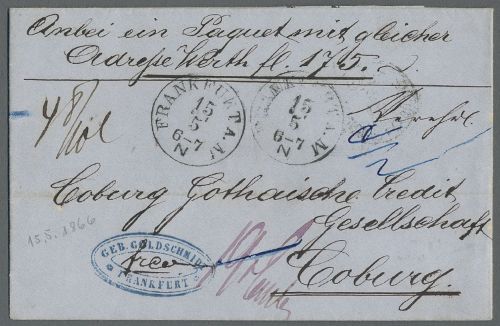 Anbei ein Paquet mit gleicher
Adreße Werth fl. 175.
FRANKFURT A.M
15
5
6-7
N
FRANKFURT A.M
15
5
6-7
N
Coburg Gothaische Credit
Gesellschaft
Coburg.
15.5.1866
GEB. GOLDSCHMIDT
FRANKFURT